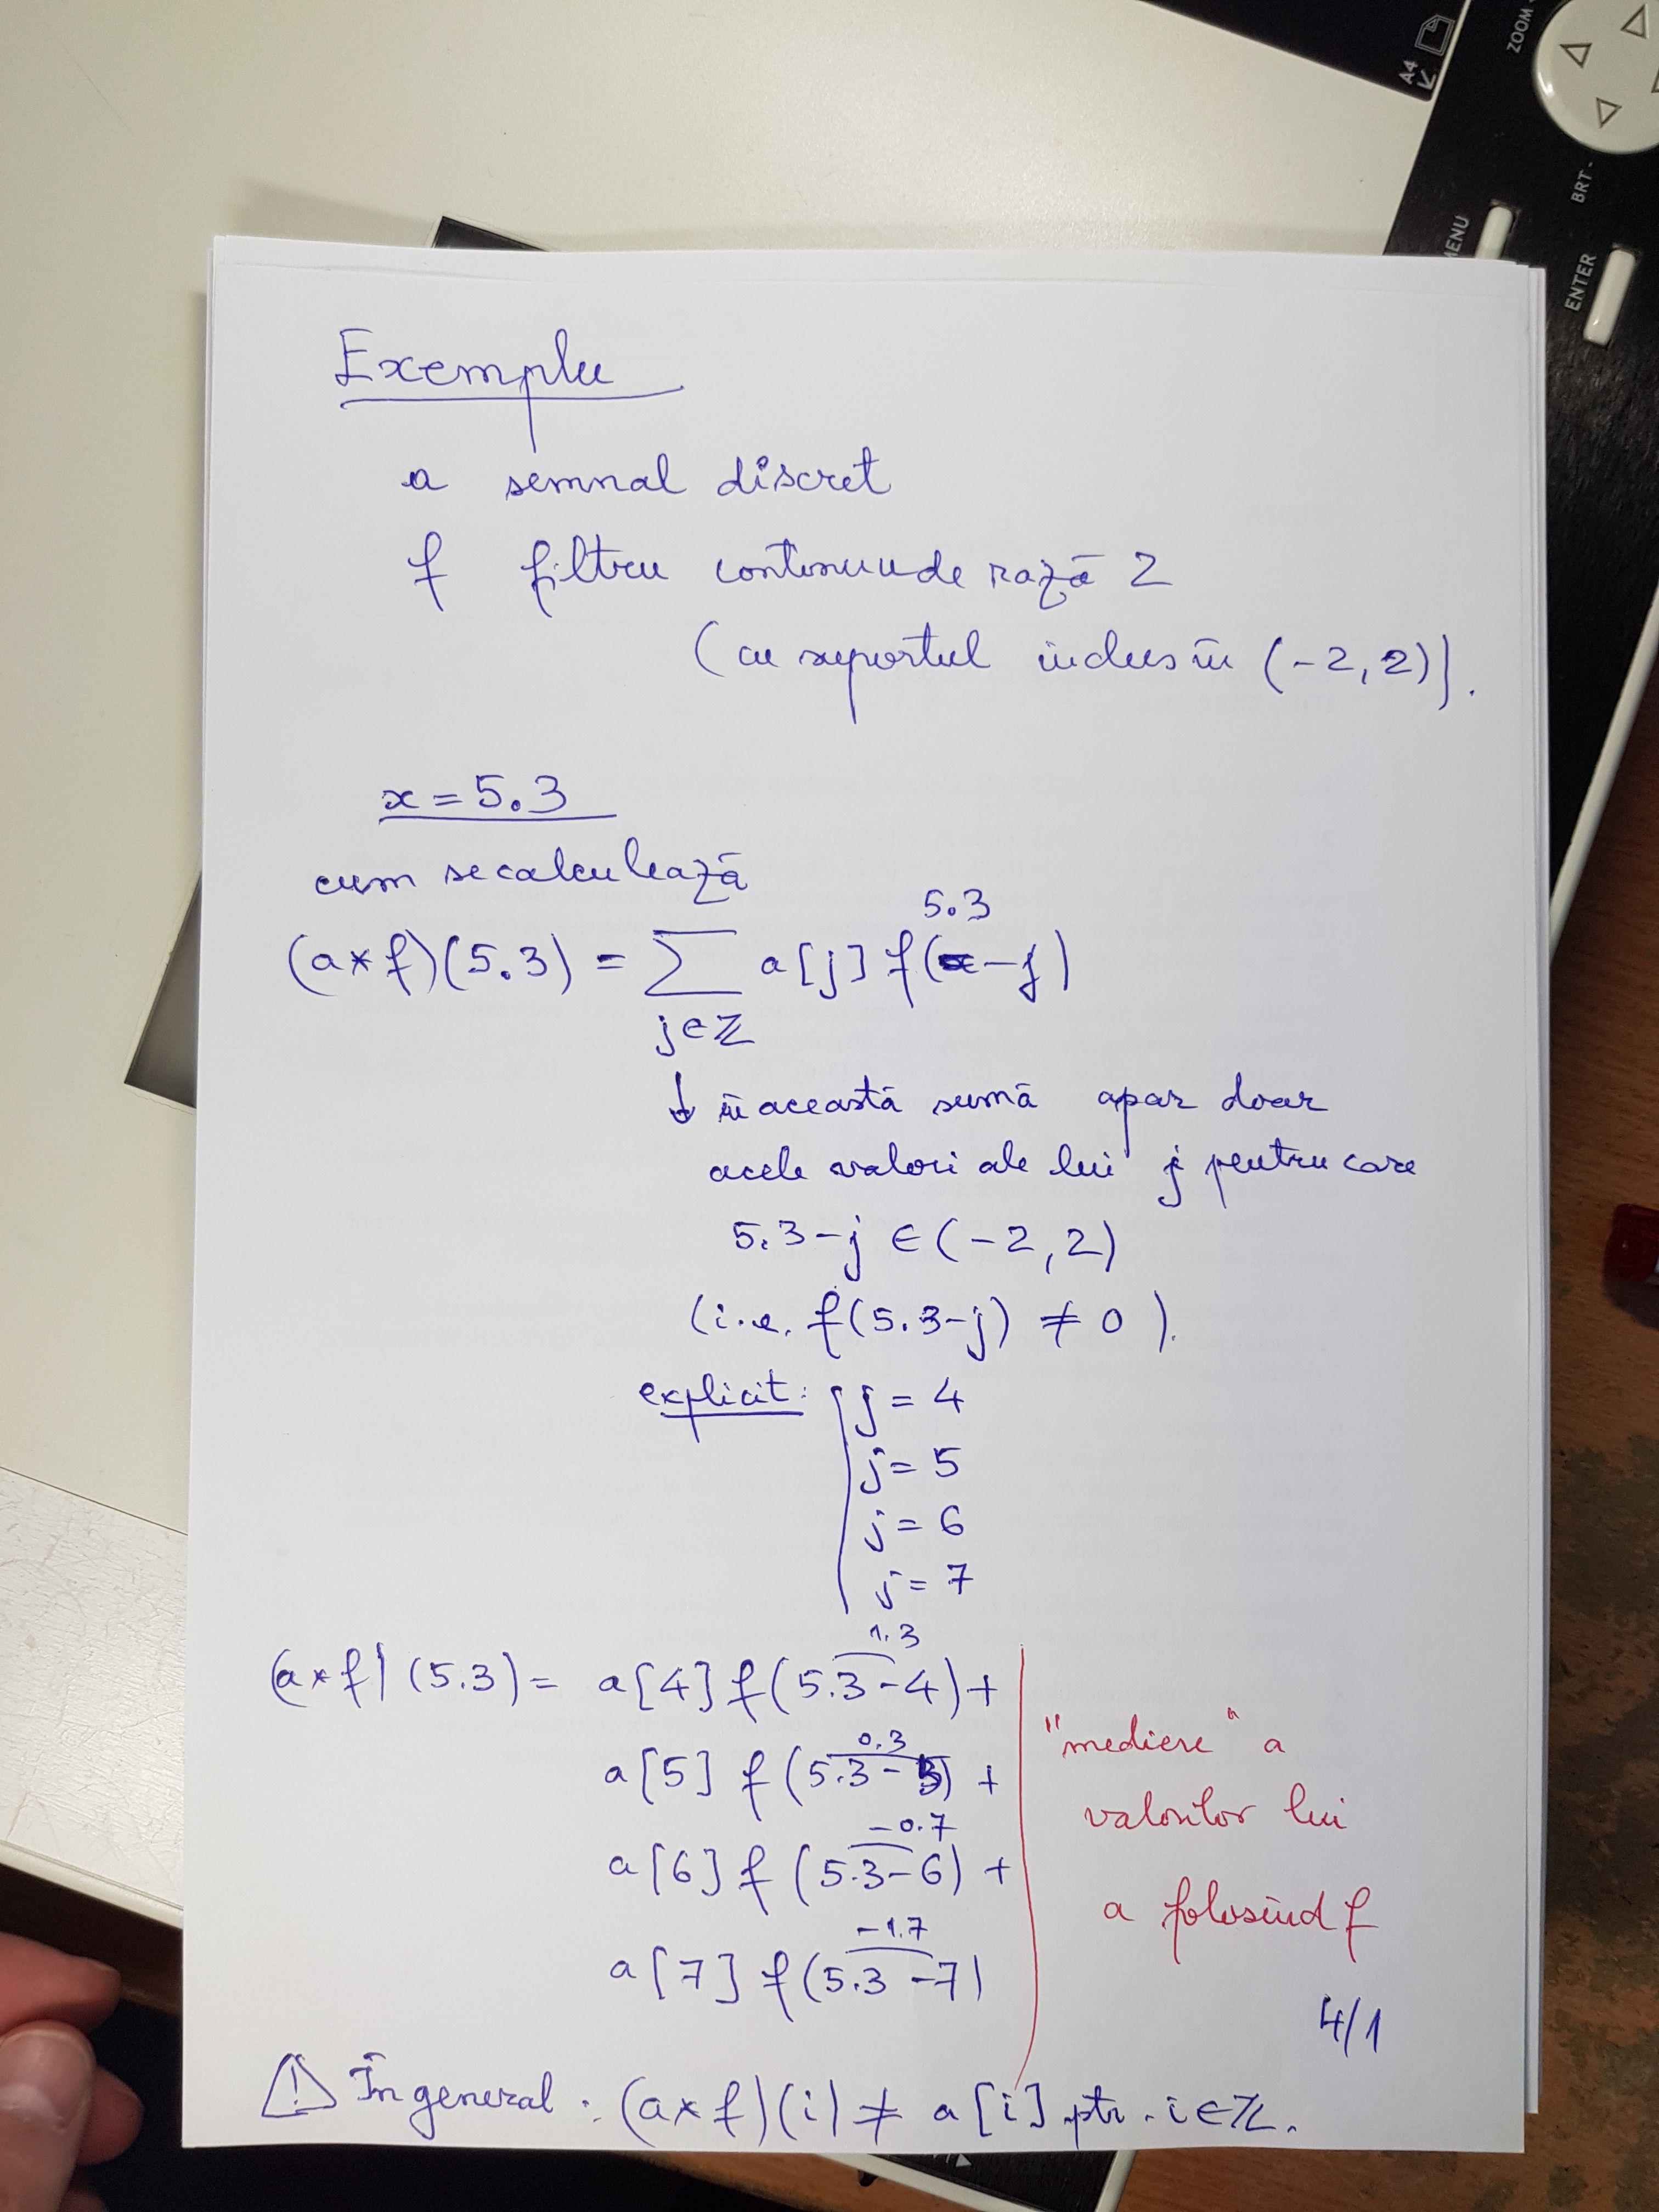 A4
ZOOM
BRT -
MENU
ENTER
Exemplu
a semnal discret
f filtru continuu de rază 2
(cu suportul inclus în (-2,2)).
x = 5.3
cum se calculează
5.3
(a*f)(5.3) = ∑ a[j] f(x-j)
j∈ℤ
↓ în această sumă apar doar
acele valori ale lui j pentru care
5.3-j ∈ (-2,2)
(i.e. f(5.3-j) ≠ 0).
explicit: j = 4
j = 5
j = 6
j = 7
1.3
(a*f)(5.3) = a[4] f(5.3-4) +
0.3
a[5] f(5.3-5) +
-0.7
a[6] f(5.3-6) +
-1.7
a[7] f(5.3-7)
"mediere" a
valorilor lui
a folosind f
4/1
⚠ În general: (a*f)(i) ≠ a[i] ptr. i∈ℤ.